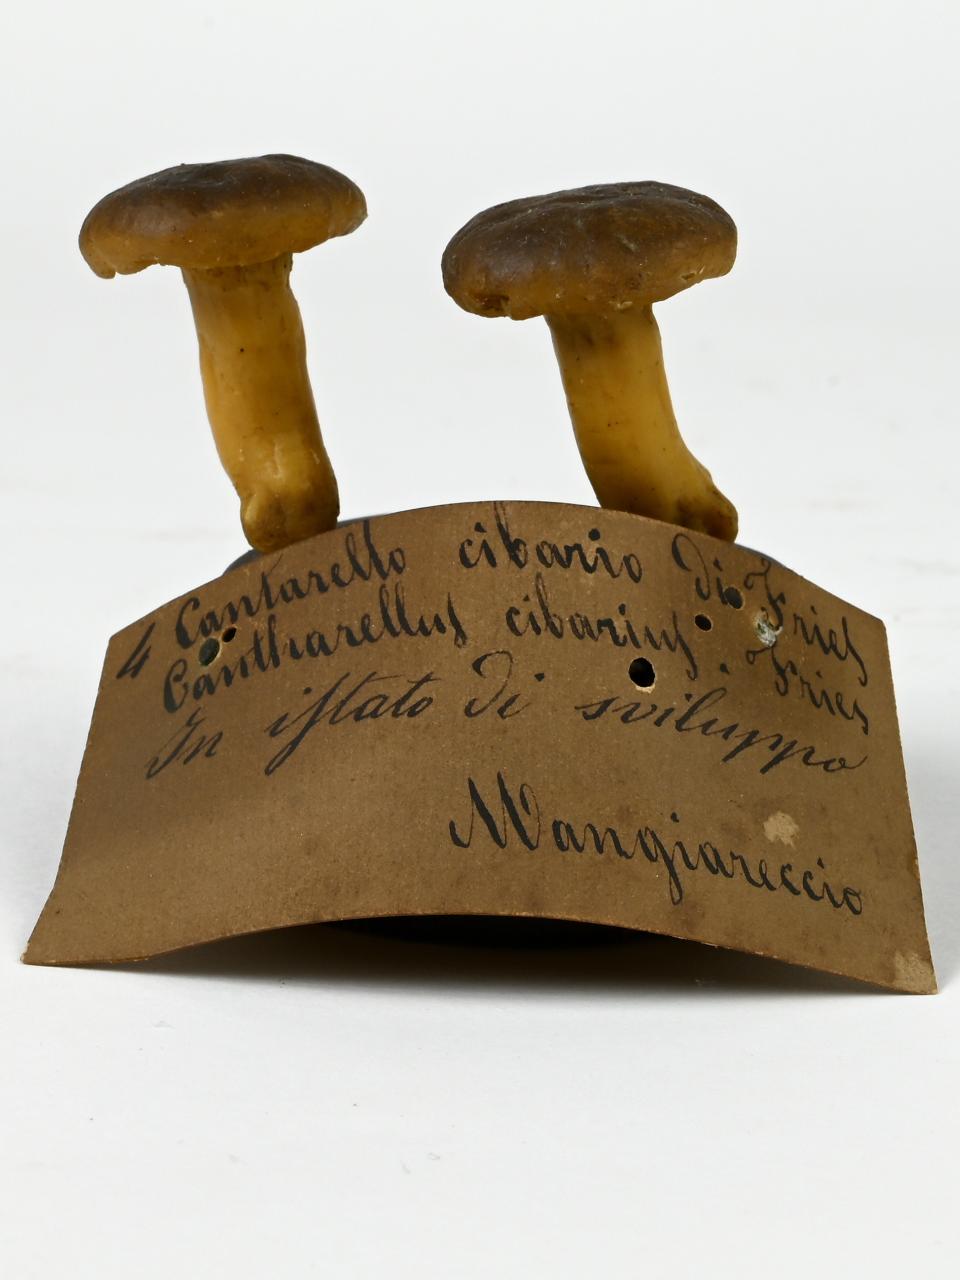 4 Cantarello cibario di Fries
Cantharellus cibarius. Fries
In istato di sviluppo
Mangiareccio